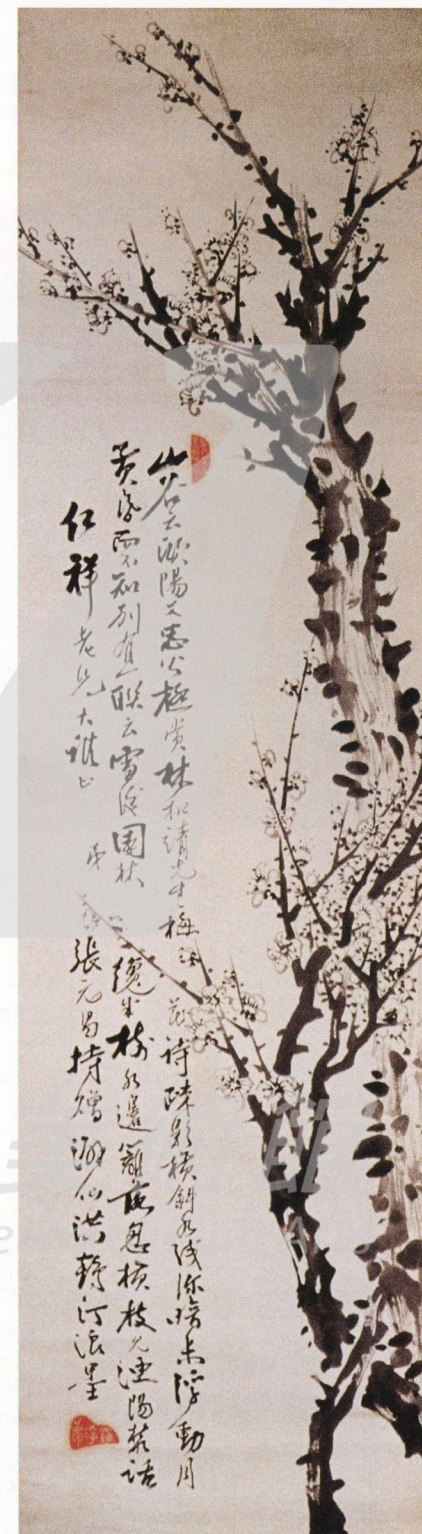 山谷云歐陽文忠公極賞林和靖先生梅詩疎影橫斜水淺深暗香浮動月
黃昏而不知別有一聯云雪後園林纔半樹水邊籬落忽橫枝
仁祥老兄大雅正 弟張元昌持贈 洪